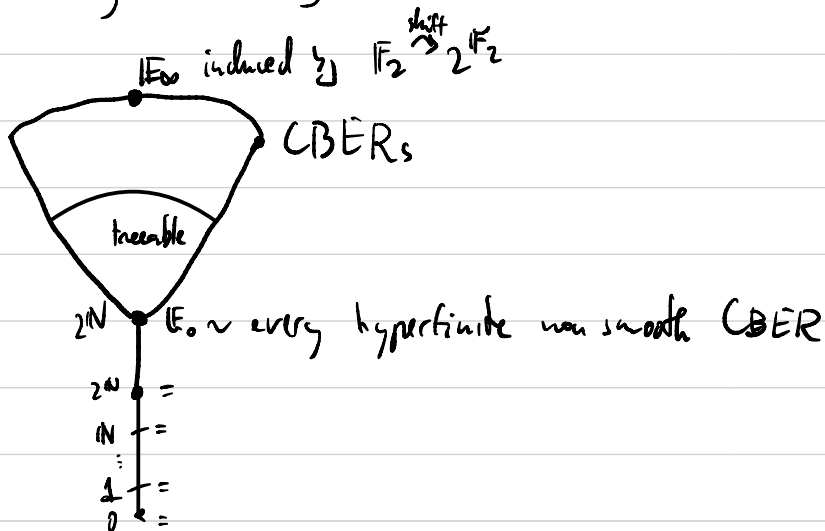 shift
𝔼∞ induced by 𝔽₂ ↷ 2^𝔽₂
CBERs
treeable
2^ℕ 𝔼₀ ~ every hyperfinite non smooth CBER
2^ℕ =
ℕ =
⋮
1 =
0 =